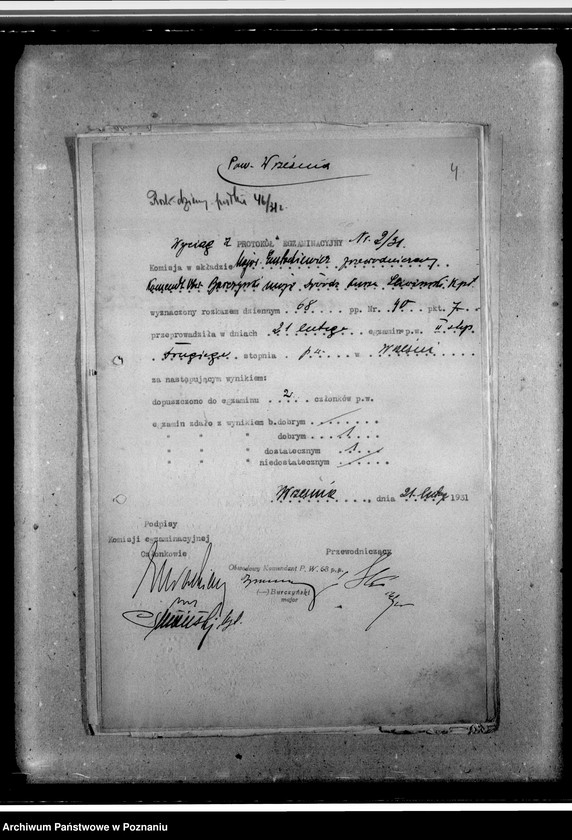 Pow. Września
4
46/31r.
Wyciąg z PROTOKÓŁ EGZAMINACYJNY Nr. 2/31.
Komisja w składzie Major przewodniczący
Komendt. Obw. major Kpt.
wyznaczony rozkazem dziennym 68 pp. Nr. 40 pkt. 7
przeprowadziła w dniach 21 lutego egzamin p.w. II stop.
Drugiego stopnia p.w. w Wrześni
za następującym wynikiem:
dopuszczono do egzaminu 2 członków p.w.
egzamin zdało z wynikiem b.dobrym
" " " dobrym 1
" " " dostatecznym 1
" " " niedostatecznym
Września, dnia 21. lutego 1931
Podpisy
Komisji egzaminacyjnej
Członkowie Przewodniczący
Obwodowy Komendant P. W. 68 p. p.
(—) Burczyński
major
Archiwum Państwowe w Poznaniu